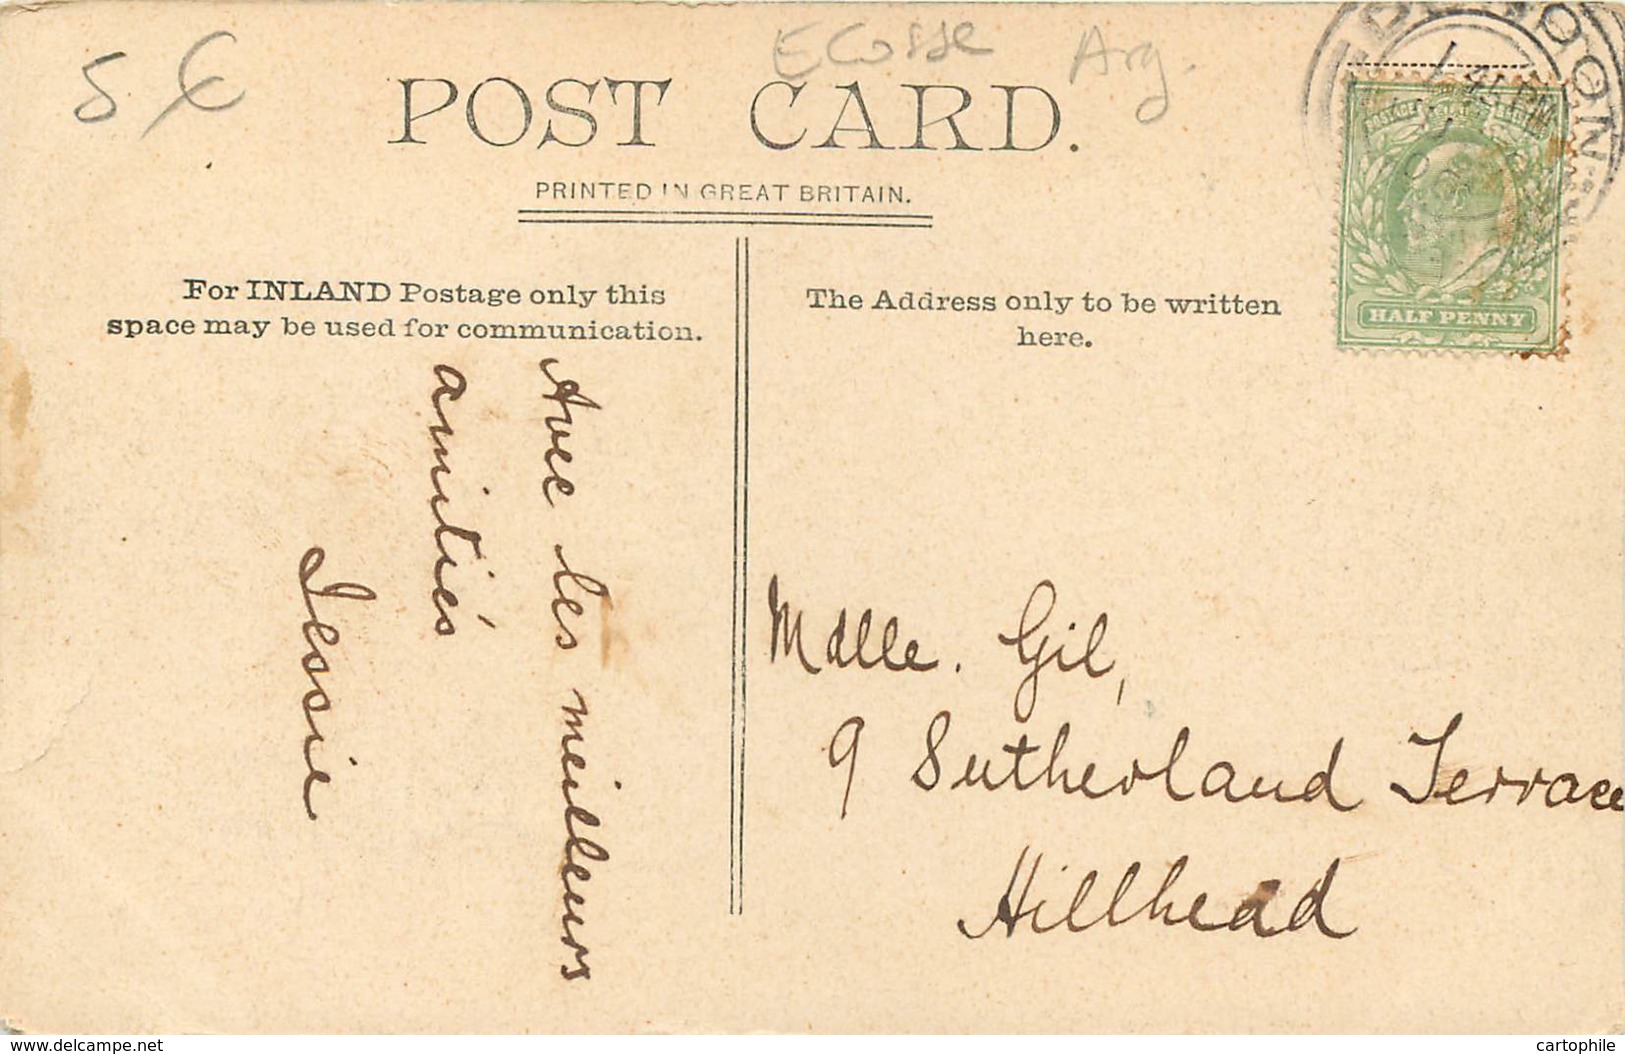 5 €
Ecosse Arg.
POST CARD.
PRINTED IN GREAT BRITAIN.
For INLAND Postage only this
space may be used for communication.
The Address only to be written
here.
HALF PENNY
Avec les meilleurs
amitiés
Jessie
Mdlle. Gil,
9 Sutherland Terrace
Hillhead
www.delcampe.net
cartophile